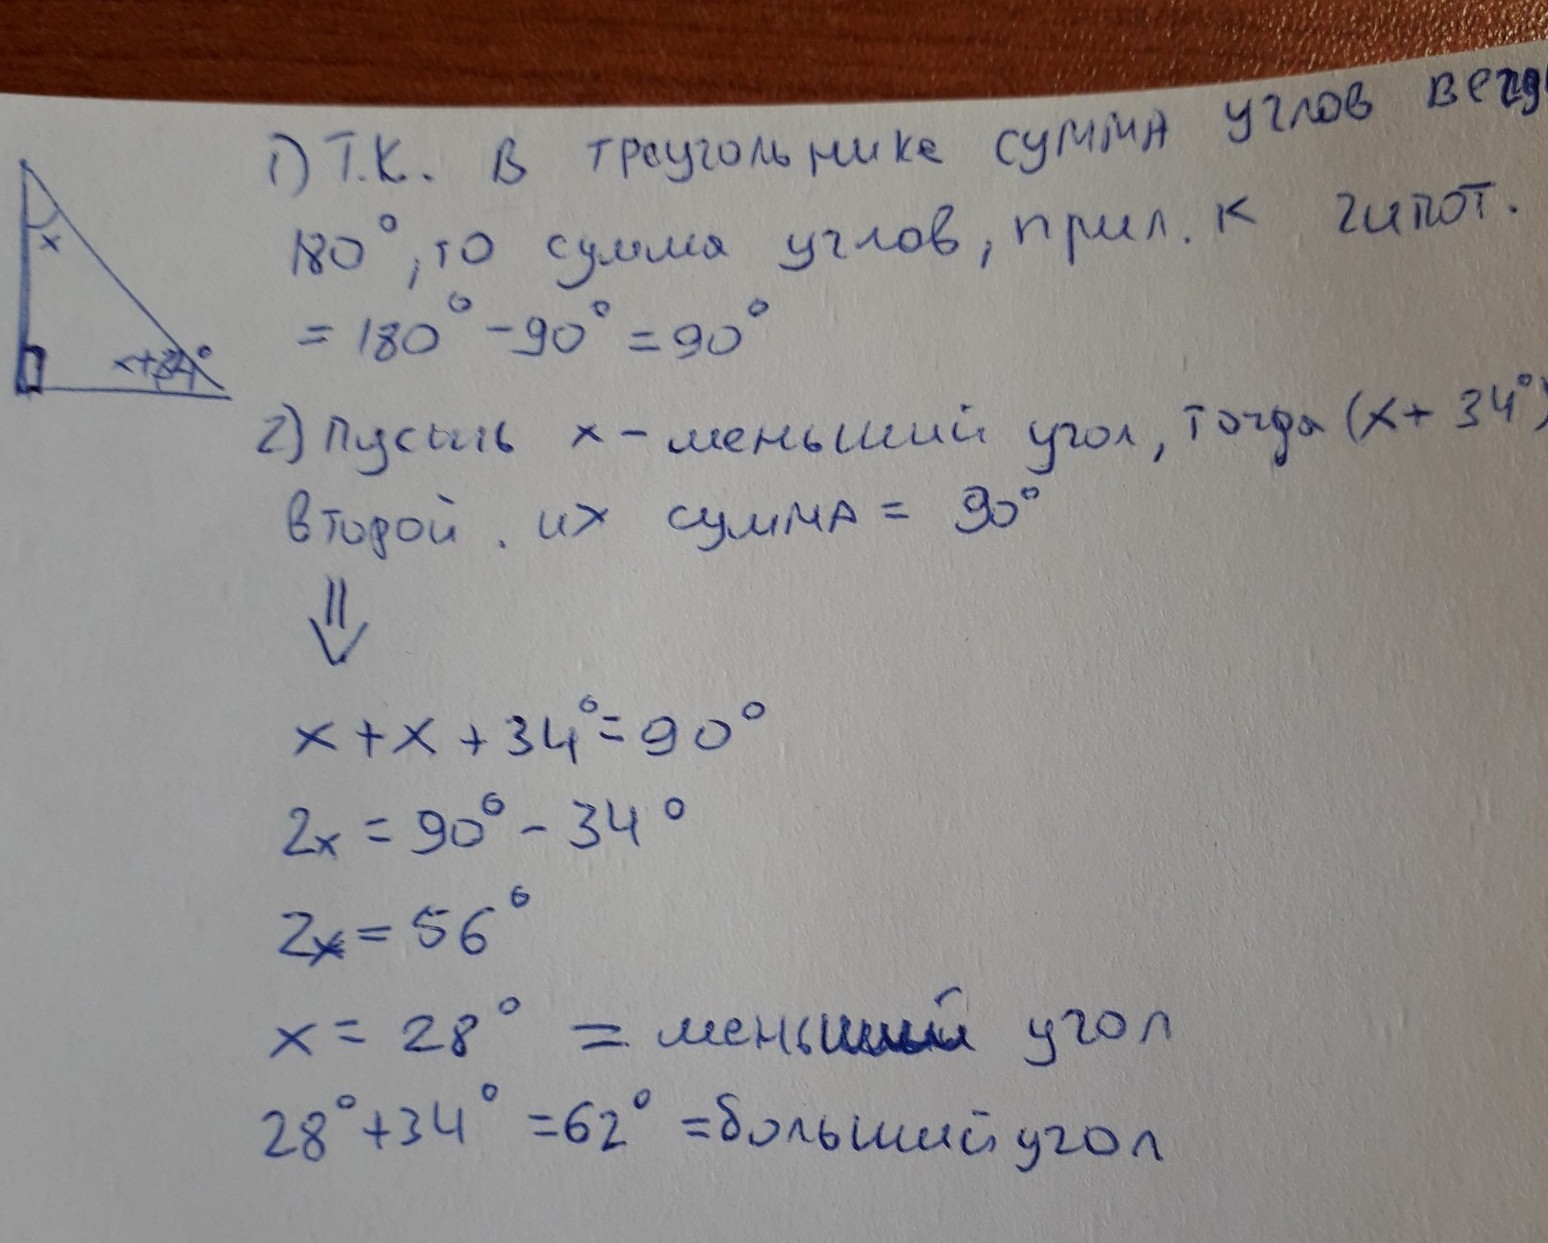 1) Т.К. в треугольнике сумма углов
180°, то сумма углов, прил. к гипот.
= 180° - 90° = 90°
x
x+34°
2) Пусть x - меньший угол, тогда (x + 34°)
второй. их сумма = 90°
⇓
x + x + 34° = 90°
2x = 90° - 34°
2x = 56°
x = 28° = меньший угол
28° + 34° = 62° = больший угол